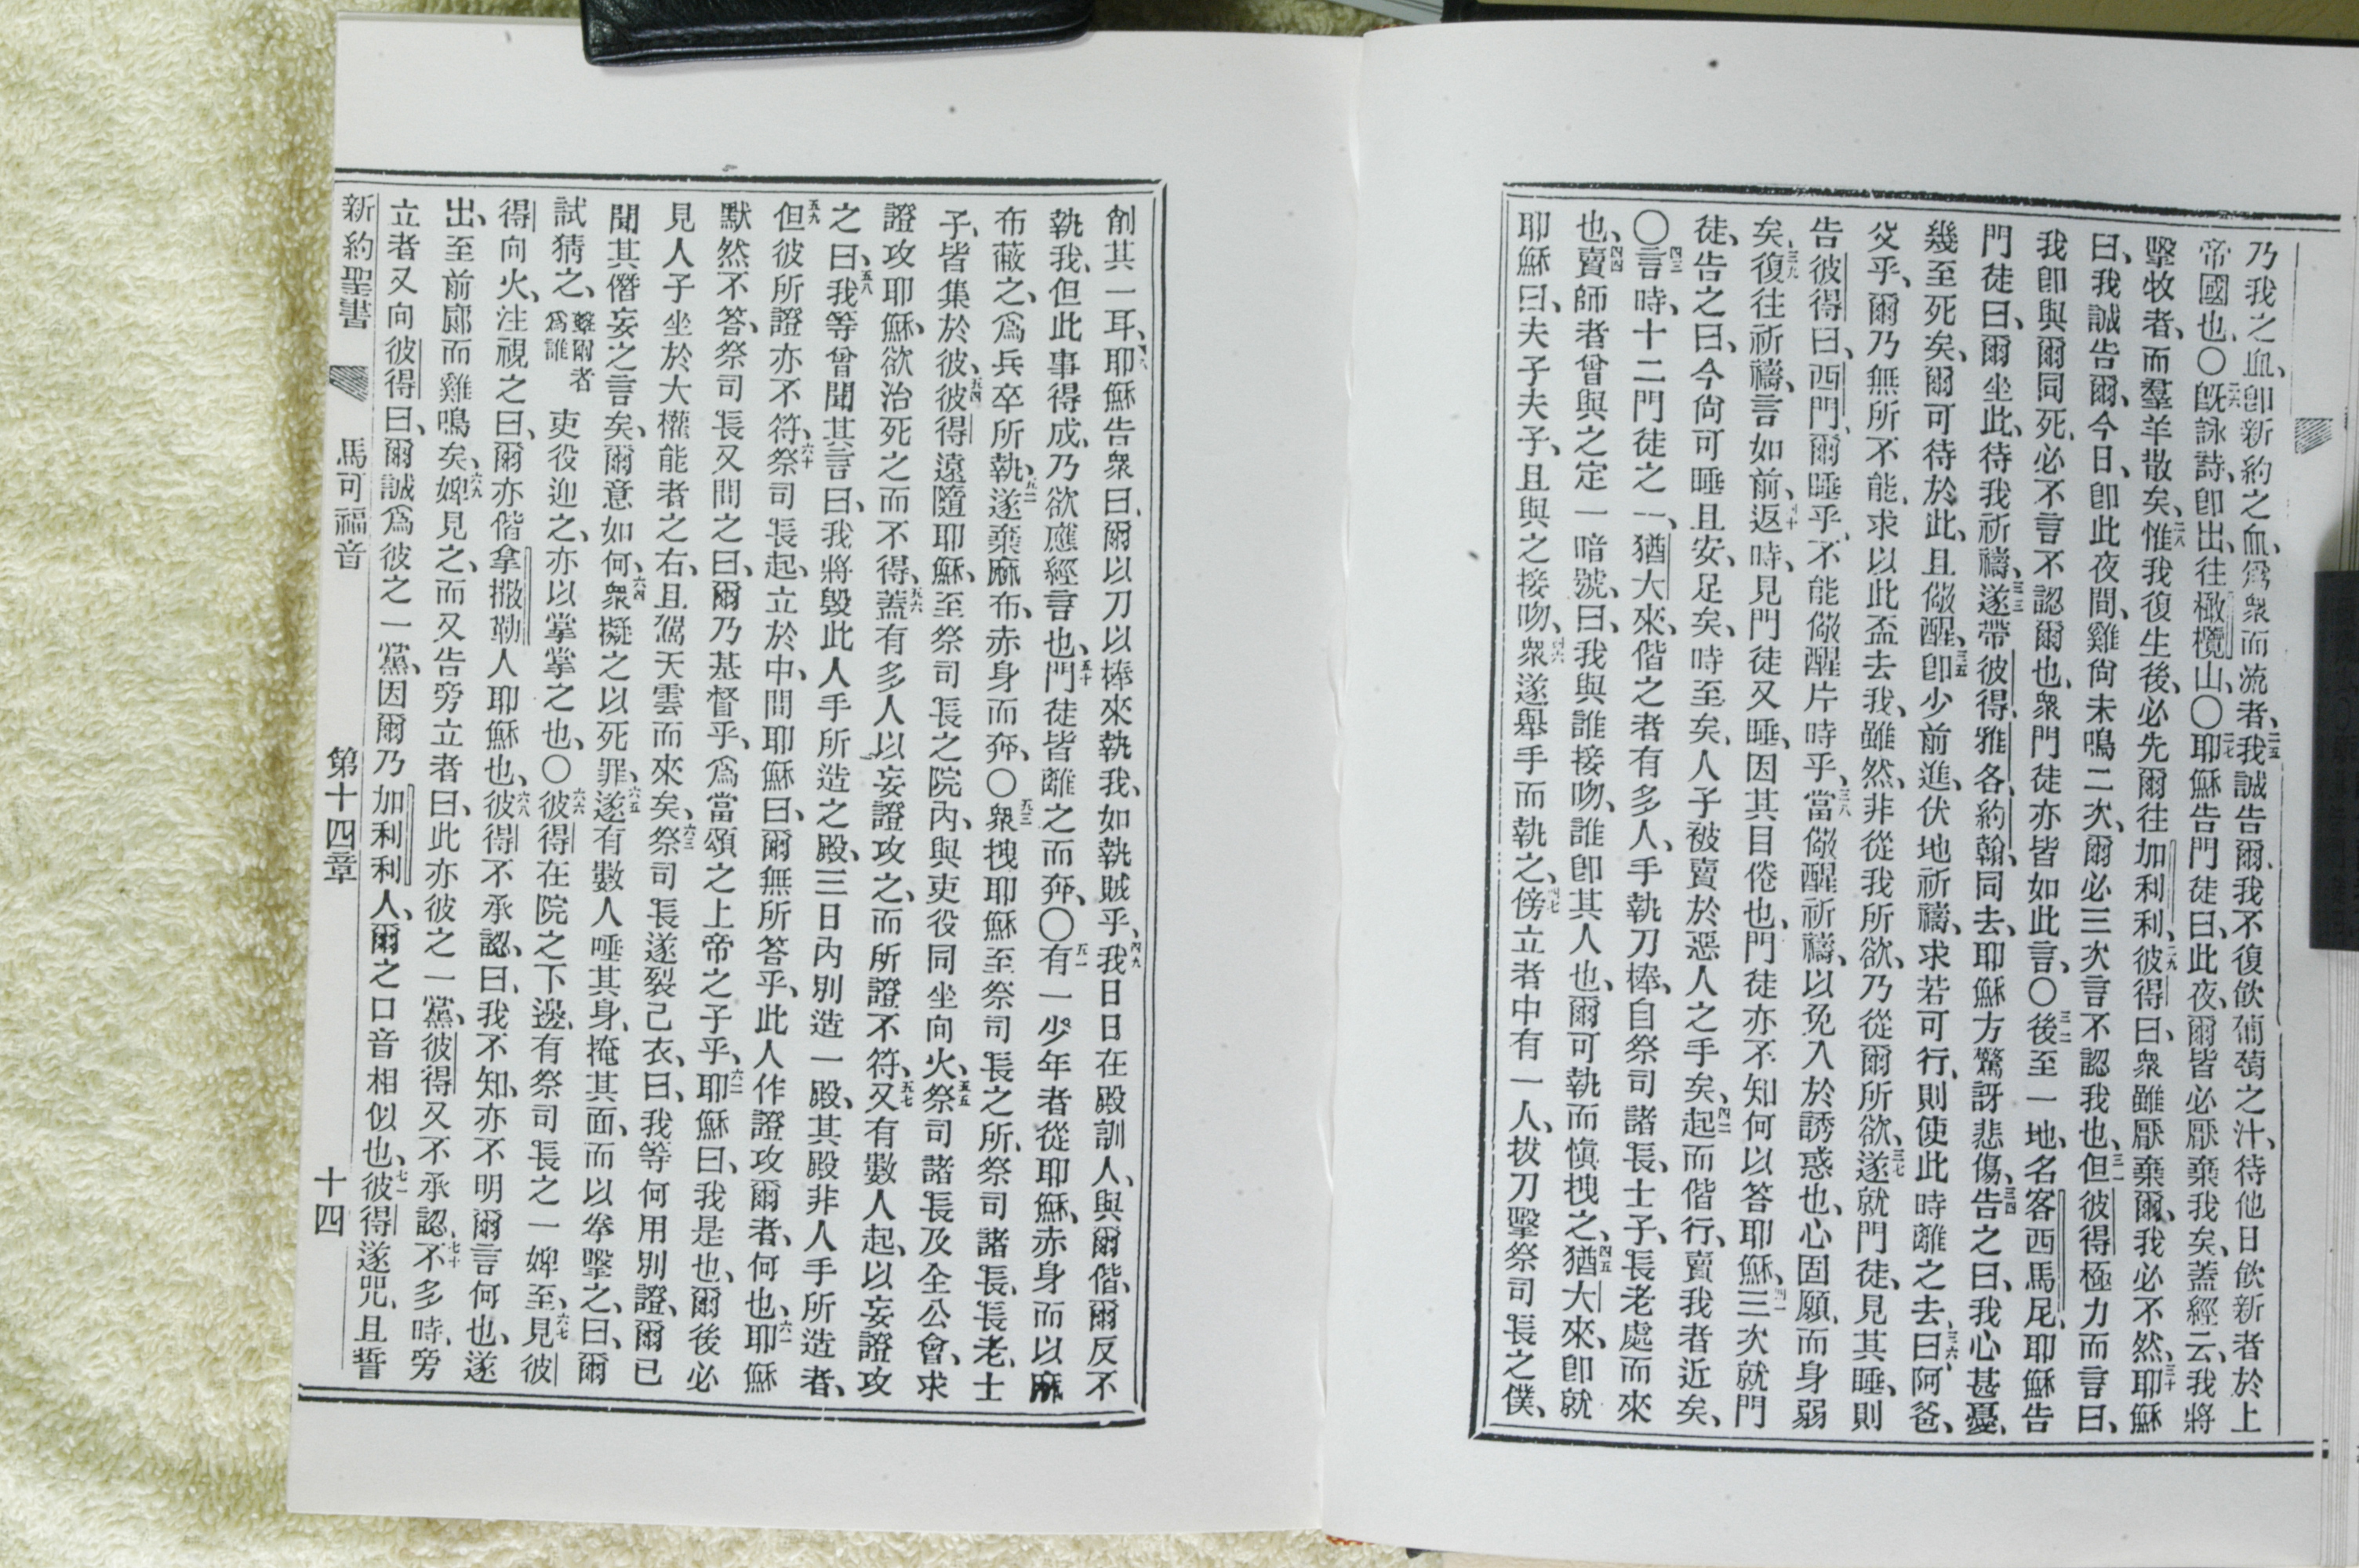 乃我之血、卽新約之血、爲衆而流者、二五我誠告爾、我不復飲葡萄之汁、待他日飲新者於上
帝國也、〇二六旣詠詩、卽出、往橄欖山、〇二七耶穌告門徒曰、此夜、爾皆必厭棄我矣、蓋經云、我將
擊牧者、而羣羊散矣、二八惟我復生後、必先爾往加利利、二九彼得曰、衆雖厭棄爾、我必不然、三十耶穌
曰、我誠告爾、今日、卽此夜間、雞尙未鳴二次、爾必三次言不認我也、三一但彼得極力而言曰、
我卽與爾同死、必不言不認爾也、衆門徒亦皆如此言、〇三二後至一地、名客西馬尼、耶穌告
門徒曰、爾坐此、待我祈禱、三三遂帶彼得、雅各、約翰、同去、耶穌方驚訝悲傷、三四告之曰、我心甚憂、
幾至死矣、爾可待於此、且儆醒、三五卽少前進、伏地祈禱、求若可行、則使此時離之去、三六曰、阿爸、
父乎、爾乃無所不能、求以此盃去我、雖然、非從我所欲、乃從爾所欲、三七遂就門徒、見其睡、則
告彼得曰、西門、爾睡乎、不能儆醒片時乎、三八當儆醒祈禱、以免入於誘惑也、心固願、而身弱
矣、三九復往祈禱、言如前、四十返時、見門徒又睡、因其目倦也、門徒亦不知何以答耶穌、四一三次就門
徒、告之曰、今尙可睡且安、足矣、時至矣、人子被賣於惡人之手矣、四二起而偕行、賣我者近矣、
〇四三言時、十二門徒之一、猶大來、偕之者有多人、手執刀棒、自祭司諸長、士子、長老處而來
也、四四賣師者曾與之定一暗號、曰、我與誰接吻、誰卽其人也、爾可執而愼拽之、四五猶大來、卽就
耶穌曰、夫子夫子、且與之接吻、四六衆遂舉手而執之、四七傍立者中有一人、拔刀擊祭司長之僕、
削其一耳、四八耶穌告衆曰、爾以刀以棒來執我、如執賊乎、四九我日日在殿訓人、與爾偕、爾反不
執我、但此事得成、乃欲應經言也、五十門徒皆離之而奔、〇五一有一少年者從耶穌、赤身而以麻
布蔽之、爲兵卒所執、五二遂棄麻布、赤身而奔、〇五三衆拽耶穌至祭司長之所、祭司諸長、長老、士
子、皆集於彼、五四彼得遠隨耶穌、至祭司長之院內、與吏役同坐向火、五五祭司諸長及全公會、求
證攻耶穌、欲治死之而不得、五六蓋有多人以妄證攻之、而所證不符、五七又有數人起、以妄證攻
之曰、五八我等曾聞其言曰、我將毀此人手所造之殿、三日內別造一殿、其殿非人手所造者、
五九但彼所證亦不符、六十祭司長起、立於中、問耶穌曰、爾無所答乎、此人作證攻爾者、何也、六一耶穌
默然不答、祭司長又問之曰、爾乃基督乎、爲當頌之上帝之子乎、六二耶穌曰、我是也、爾後必
見人子坐於大權能者之右、且駕天雲而來矣、六三祭司長遂裂己衣、曰、我等何用別證、爾已
聞其僭妄之言矣、爾意如何、六四衆擬之以死罪、六五遂有數人唾其身、掩其面、而以拳擊之、曰、爾
試猜之、擊爾者爲誰 吏役迎之、亦以掌掌之也、〇六六彼得在院之下邊、有祭司長之一婢至、六七見彼
得向火、注視之曰、爾亦偕拿撒勒人耶穌也、六八彼得不承認、曰、我不知、亦不明爾言何也、遂
出、至前廊而雞鳴矣、六九婢見之、而又告旁立者曰、此亦彼之一黨、彼得又不承認、七十不多時、旁
立者又向彼得曰、爾誠爲彼之一黨、因爾乃加利利人、爾之口音相似也、七一彼得遂咒、且誓
新約聖書 馬可福音 第十四章 十四